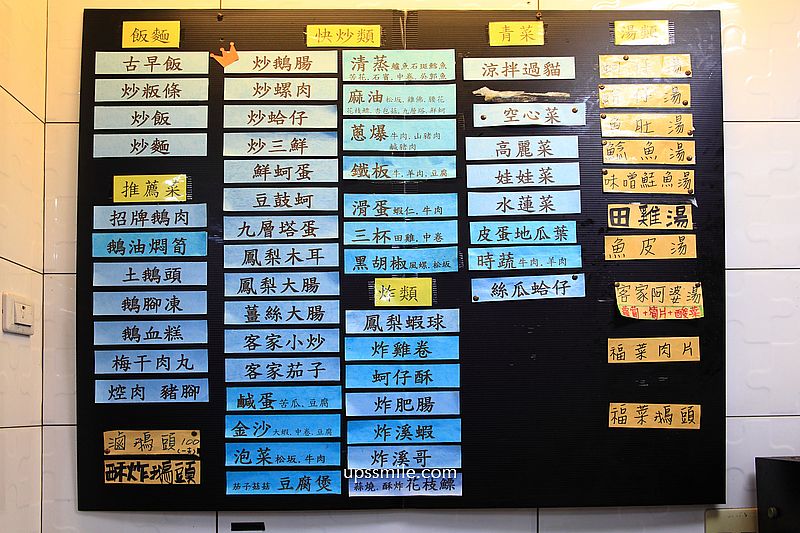 飯麵
古早飯
炒粄條
炒飯
炒麵
推薦菜
招牌鵝肉
鵝油燜筍
土鵝頭
鵝腳凍
鵝血糕
梅干肉丸
焢肉 豬腳
滷鵝頭 100
酥炸鵝頭
快炒類
炒鵝腸
炒螺肉
炒蛤仔
炒三鮮
鮮蚵蛋
豆鼓蚵
九層塔蛋
鳳梨木耳
鳳梨大腸
薑絲大腸
客家小炒
客家茄子
鹹蛋 苦瓜、豆腐
金沙 大蝦、中卷、豆腐
泡菜 松坂、牛肉
茄子菇菇 豆腐煲
清蒸 鱸魚石斑鱈魚
苦花、石賓、中卷、吳郭魚
麻油 松坂、雞佛、腰花
花枝螺、杏包菇、九層塔、鮮蚵
蔥爆 牛肉、山豬肉
鹹豬肉
鐵板 牛、羊肉、豆腐
滑蛋 蝦仁、牛肉
三杯 田雞、中卷
黑胡椒 風螺、松坂
炸類
鳳梨蝦球
炸雞卷
蚵仔酥
炸肥腸
炸溪蝦
炸溪哥
蒜燒、酥炸 花枝鰾
青菜
涼拌過貓
空心菜
高麗菜
娃娃菜
水蓮菜
皮蛋地瓜葉
時蔬 牛肉、羊肉
絲瓜蛤仔
湯麵
魚肚湯
魚湯
味噌鮭魚湯
田雞湯
魚皮湯
客家阿婆湯
福菜肉片
福菜鵝頭
upssmile.com